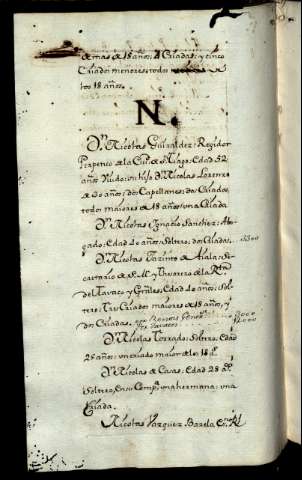 de mas de 18 años, 2 Criadas; y cinco
Criados menores todos de
los 18 años.
N.
Dn. Nicolas Guiraldez: Regidor
Perpetuo de la Ciud. de Stiago: Edad 52
años Viudo: un hijo Dn. Nicolas Lorenzo
de 20 años: dos Capellanes: dos Criados
todos maiores de 18 años: una Criada
Dn. Nicolas Ignacio Sanchez: Abo
gado: Edad 40 años: Soltero: dos Criadas.
Dn. Nicolas Jazinto de Aiala: Se
cretario de S. M. y Thesorero de la Rta.
del Tavaco y Grâles: Edad 40 años: Sol
tero: Tres Criados maiores de 18 años, y
dos Criadas.
Dn. Nicolas Torrado: Soltero: Edad
25 años: un criado maior de los 18 as.
Dn. Nicolas de Casas: Edad 28 as.
Soltero, en su Compa. una hermana: una
Criada.
Nicolas Vazquez Varela